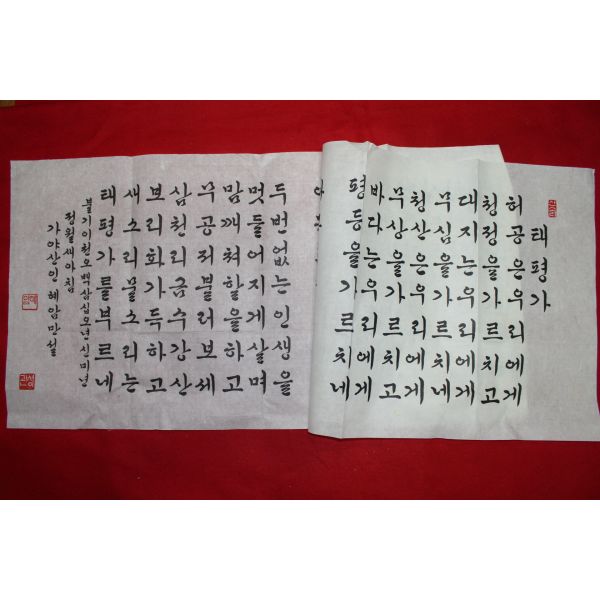 태평가
허공은우리에게
청정을가르치고
대지는우리에게
무심을가르치네
청산은우리에게
무상을가르치고
바다는우리에게
평등을가르치네
두번없는인생을
멋들어지게살며
맘깨쳐할을하고
무공저불러보세
삼천리금수강산
보리화가득하고
새소리물소리는
태평가를부르네
불기이천오백삼십오년신미년
정월새아침
가야산인혜암만설